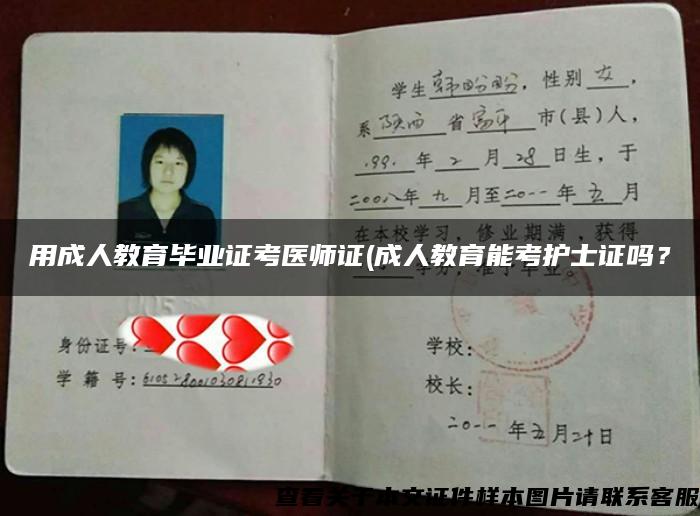 学生韩盼盼，性别女，
系陕西省富平市(县)人，
1991年2月28日生，于
二00八年九月至二0一一年五月
在本校学习，修业期满，获得
学分，准予毕业。
用成人教育毕业证考医师证(成人教育能考护士证吗？
身份证号：
学籍号：
学校：
校长：
二0一一年五月二十日
查看关于本文证件样本图片请联系客服